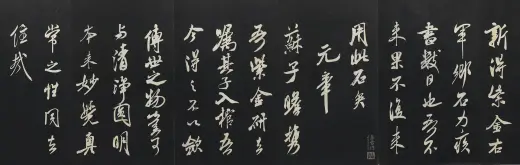 新得紫金右
軍鄉石力疾
書數日也吾不
来果不復来
用此石矣
元章
蘇子瞻携
吾紫金研去
嘱其子入棺吾
今得之不以斂
傳世之物豈可
与清淨圓明
本来妙覺真
常之性同去
住哉